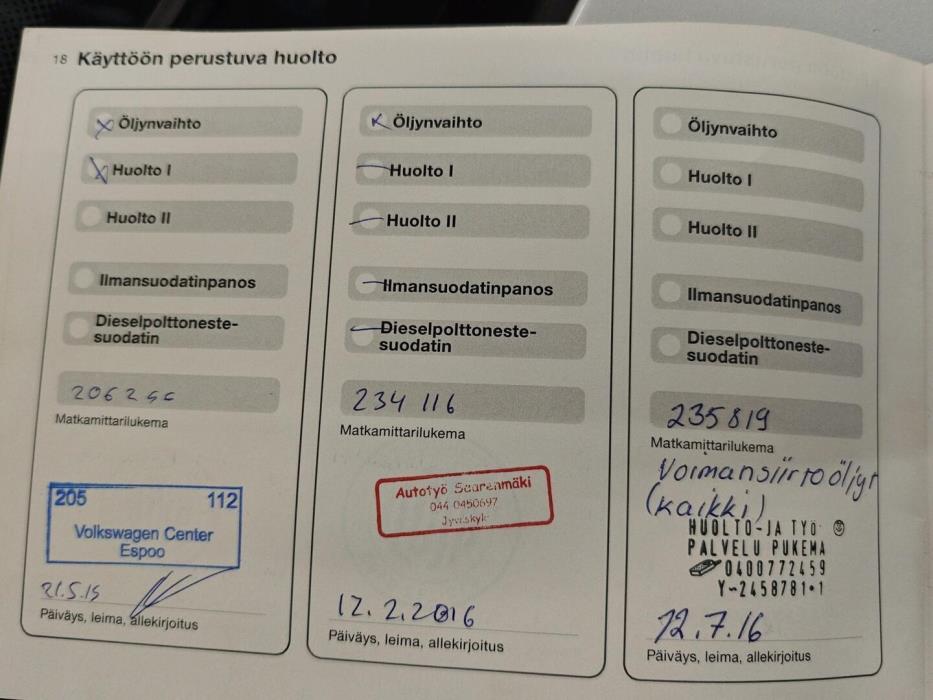 18 Käyttöön perustuva huolto
Öljynvaihto
Huolto I
Huolto II
Ilmansuodatinpanos
Dieselpolttoneste-
suodatin
Matkamittarilukema
205 112
Volkswagen Center
Espoo
21.5.15
Päiväys, leima, allekirjoitus
Öljynvaihto
Huolto I
Huolto II
Ilmansuodatinpanos
Dieselpolttoneste-
suodatin
234 116
Matkamittarilukema
Autotyö Saarenmäki
044 0450697
Jyväskylä
12.2.2016
Päiväys, leima, allekirjoitus
Öljynvaihto
Huolto I
Huolto II
Ilmansuodatinpanos
Dieselpolttoneste-
suodatin
235819
Matkamittarilukema
Voimansiirtoöljyt
(kaikki)
HUOLTO-JA TYÖ
PALVELU PUKEMA
0400772459
Y-2458781-1
12.7.16
Päiväys, leima, allekirjoitus